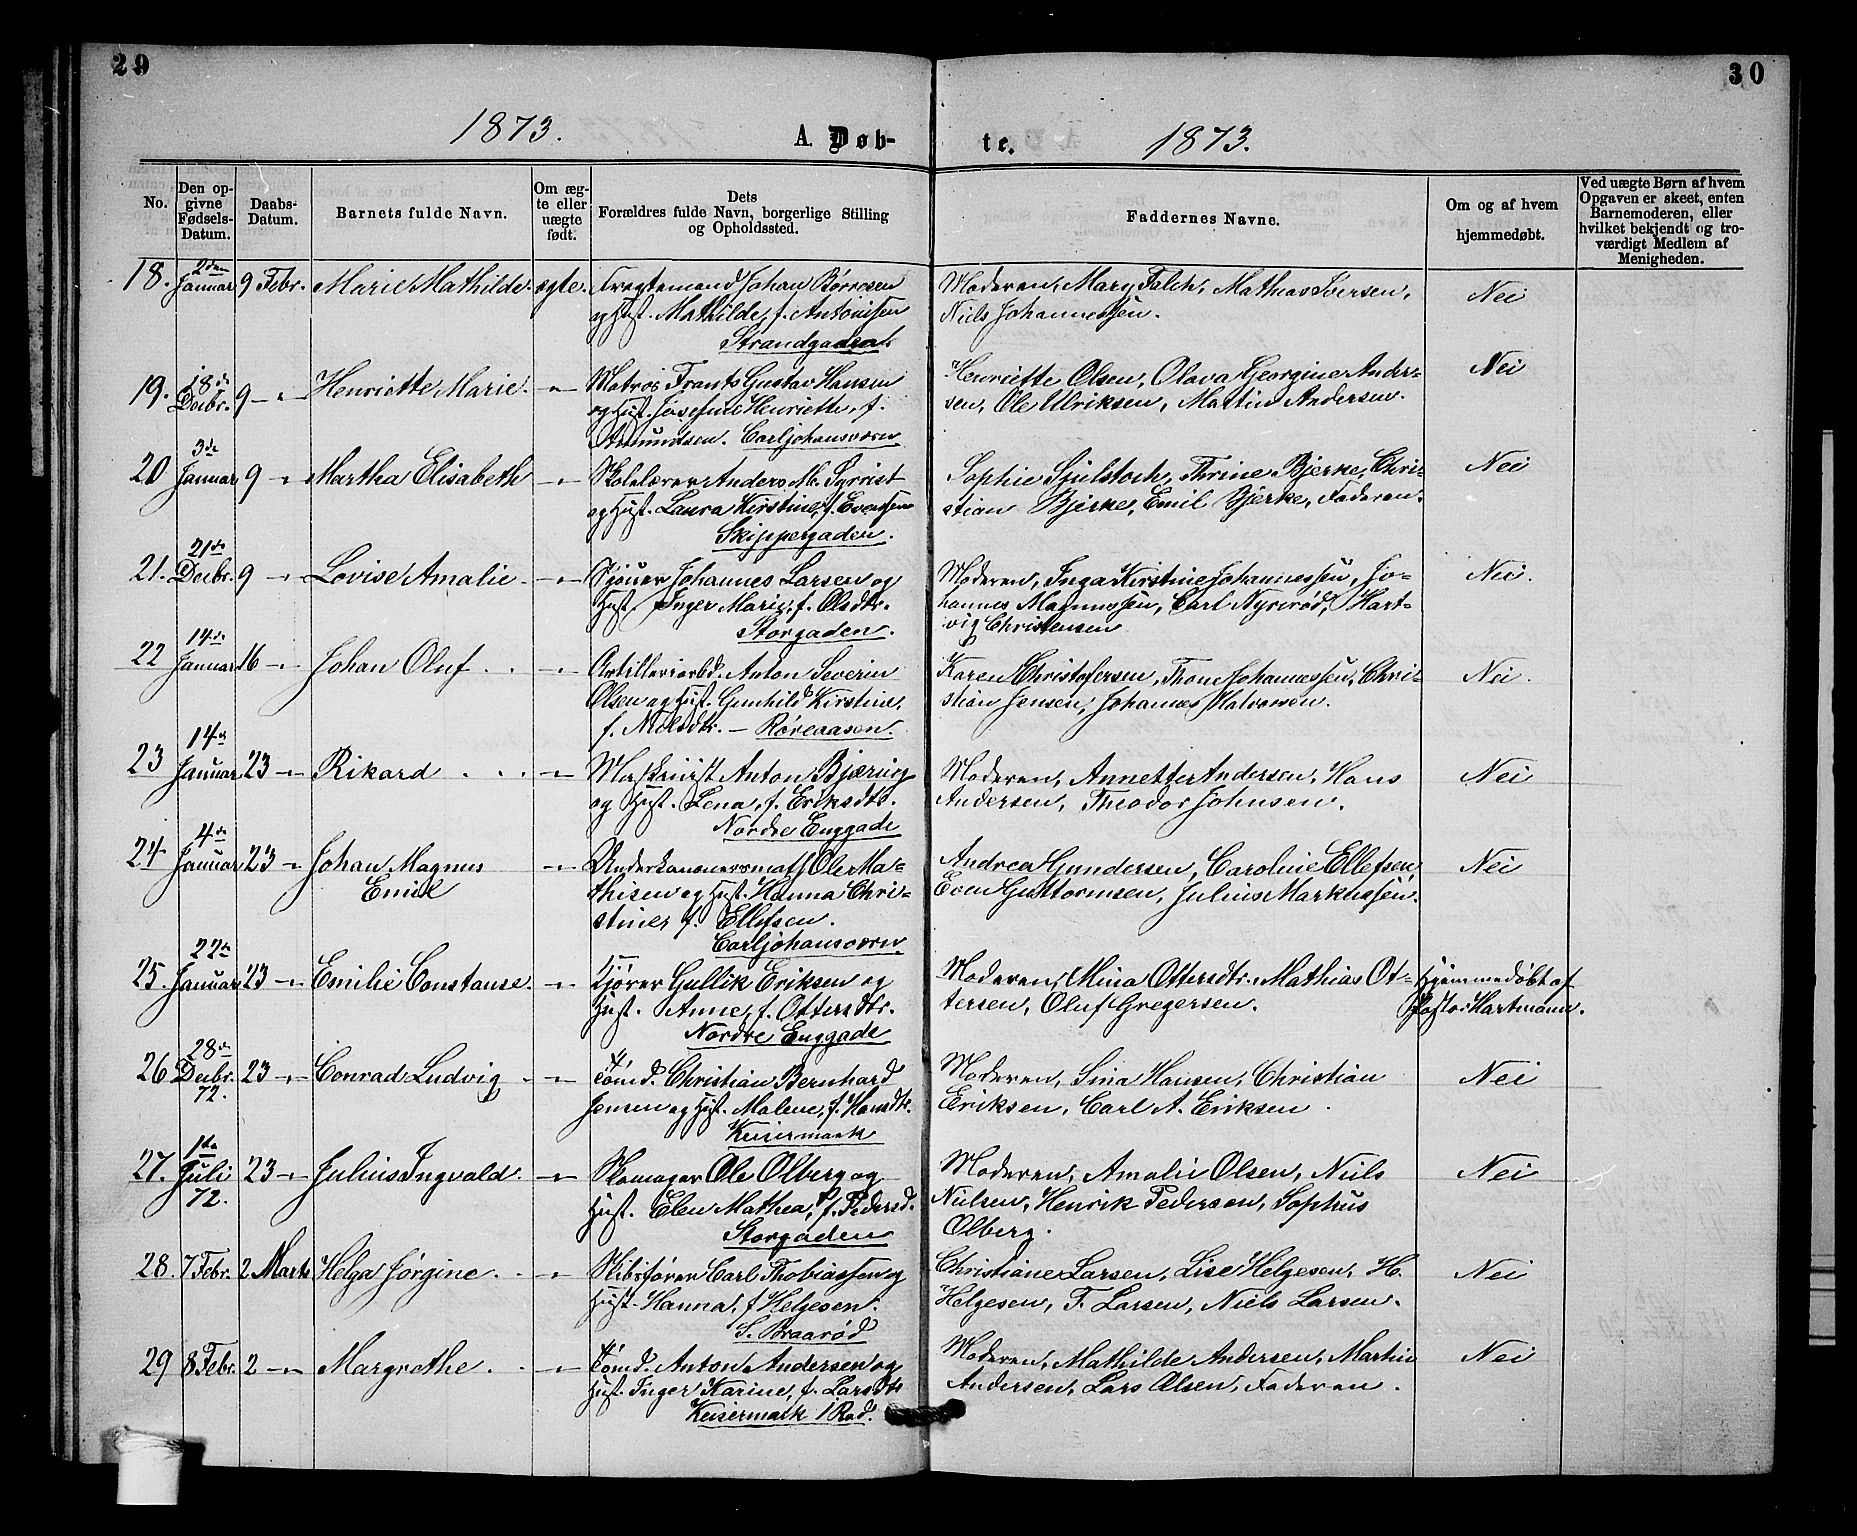 29
30
1873.
A. Døb-
te.
1873.
No.
Den op-
givne
Fødsels-
Datum.
Daabs-
Datum.
Barnets fulde Navn.
Om æg-
te eller
uægte
født.
Dets
Forældres fulde Navn, borgerlige Stilling
og Opholdssted.
Faddernes Navne.
Om og af hvem
hjemmedøbt.
Ved uægte Børn af hvem
Opgaven er skeet, enten
Barnemoderen, eller
hvilket bekjendt og tro-
værdigt Medlem af
Menigheden.
18. 2den Januar 9 Febr. Marie Mathilde ægte.
Fragtemand Johan Børresen
og Hust. Mathilde, f. Antonisen
Strandgaden.
Moderen, Mary Falch, Mathias Iversen,
Niels Johannessen.
Nei
19. 18de Decbr. 9 -"- Henriette Marie. -"-
Matros Frants Gustav Hansen
og Hust. Josefine Henriette, f.
Amundsen. Carljohansværn
Henriette Olsen, Olava Georgine Ander-
sen, Ole Ulriksen, Martin Andersen.
Nei
20 3de Januar 9 -"- Martha Elisabeth -"-
Skolelærer Anders M.
og Hust. Laura Kirstine, f. Evensen
Skippergaden.
Sophie Thrine Bjerke, Chri-
stian Bjerke, Emil Bjerke, Faderen.
Nei
21. 21de Decbr. 9 -"- Lovise Amalie. -"-
Sjouer Johannes Larsen og
Hust. Inger Marie, f. Olsdtr.
Storgaden.
Moderen, Inga Kirstine Johannessen, Jo-
hannes Magnussen, Carl Nyrerød, Hart-
vig Christensen
Nei.
22 14de Januar 16 -"- Johan Oluf . . -"-
Artilleriarbd. Anton Severin
Olsen og Hust. Gunhild Kirstine,
f. Nilsdtr. — Røreaasen.
Karen Christofersen, Thone Johannessen, Chri-
stian Jensen, Johannes Halvorsen.
Nei.
23 14de Januar 23 -"- Rikard . . . -"-
Anton Bjæring
og Hust. Lena, f. Eriksdtr.
Nordre Enggade
Moderen, Annette Andersen, Hans
Andersen, Theodor Johnsen.
Nei
24 4de Januar 23 -"- Johan Magnus -"-
Emil
Underkanonersmath Ole Ma-
thisen og Hust. Hanna Chri-
stine f. Ellefsen.
Carljohansværn
Andrea Gundersen, Caroline Ellefsen,
Even Guttormsen, Julius Markussen.
Nei
25. 22de Januar 23 -"- Emilie Constanse. -"-
Kjører Gullik Eriksen og
Hust. Anne, f. Ottersdtr.
Nordre Enggade
Moderen, Mina Ottersdtr. Mathias Ot-
tersen, Oluf Gregersen.
Hjemmedøbt af
Pastor Hartmann.
26 28de Decbr. 72. 23 -"- Conrad Ludvig . -"-
Tømd. Christian Bernhard
Jensen og Hust. Malene, f. Hansdtr.
Keisermark
Moderen, Sina Hansen, Christian
Eriksen, Carl A. Eriksen.
Nei
27. 1ste Juli 72. 23 -"- Julius Ingvald. -"-
Skomager Ole Olberg og
Hust. Elen Mathea, f. Pedersd.
Storgaden
Moderen, Amalie Olsen, Niels
Nielsen, Henrik Pedersen, Sophus
Olberg.
Nei
28. 7 Febr. 2 Marts Helga Jørgine. . -"-
Skibsfører Carl Thobiassen og
Hust. Hanna, f Helgesen.
S. Braarød
Christiane Larsen, Lise Helgesen, H.
Helgesen, T. Larsen, Niels Larsen.
Nei
29 8 Febr. 2 -"- Margrethe. . -"-
Tømd. Anton Andersen og
Hust. Inger Karine, f. Larsdtr
Keisermark 1 Rad.
Moderen, Mathilde Andersen, Martin
Andersen, Lars Olsen, Faderen.
Nei